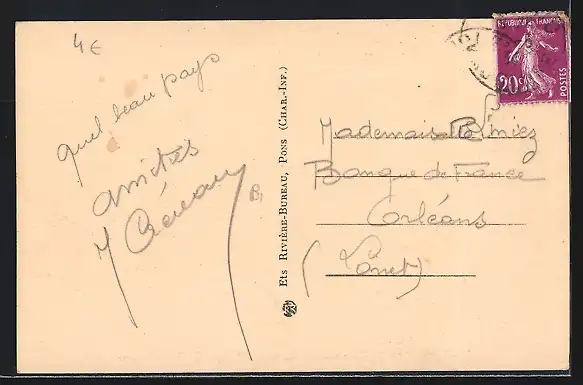 4 €
quel beau pays
amitiés
Ets Rivière-Bureau, Pons (Char.-Inf.)
REPUBLIQUE FRANÇAISE
20c
POSTES
Mademoiselle
Banque de France
Orléans
(Loiret)